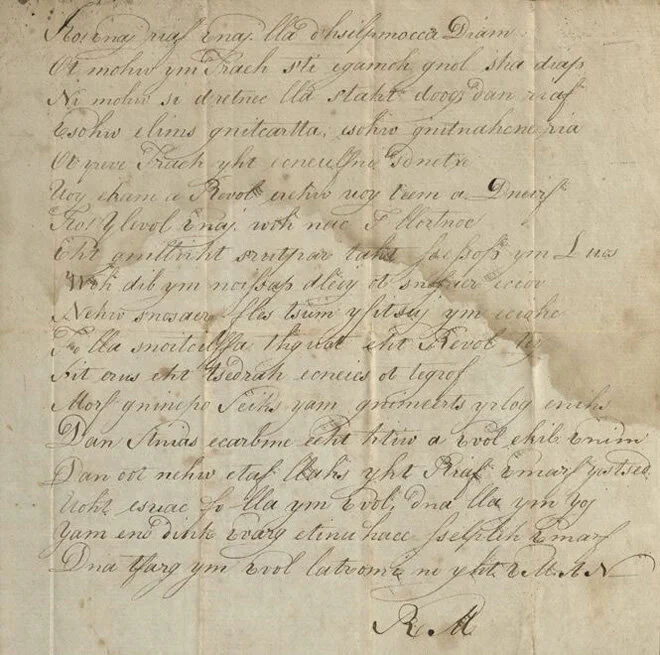 Rof enaj riaf Enaj. lla dhsilpmocca Diam
Ot mohw ym Traeh sti egamoh gnol sha diap
Ni mohw si dretnec lla staht doog dan riaf
Esohw elims gnitcartta, esohw gnitnahcne ria
Ot yreve Traeh yht ecneulfni Sdnetxe
Uoy ekam a Revol erehw uoy teem a Dneirf
Rof Ylevol Enaj woh nac I llortnoc
Eht gnillirht serutpar taht ssessop ym Luos
Woh dib ym noissap dleiy ot snosaer eciov
Nehw snosaer fles tsum yfitsuj ym eciohc
Fo lla snoitceffa thguat eht Revol tey
Tit erus eht tsedrah ecneics ot tegrof
Morf gninepo Seiks yam gnimaerts yrlog enihs
Dan Stnias ecarbme eeht htiw a Evol ekil Enim
Dan oot nehw etaf llahs yht Riaf Emarf yortsed
Uoht esuac fo lla ym Evol, dna lla ym yoj
Yam eno dink Evarg etinu hcae sselpleh Emarf
Dna tfarg ym Evol latromi no yht EMAN
R. M.